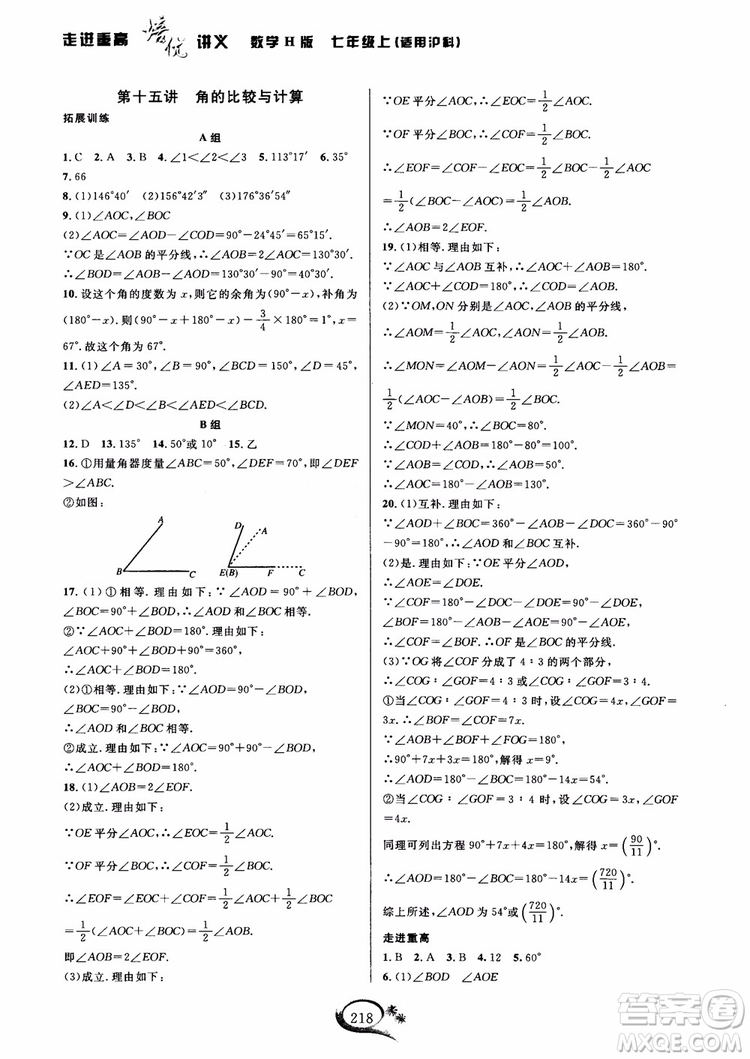 走进重高 培优 讲义 数学H版 七年级上(适用沪科)
第十五讲 角的比较与计算
拓展训练
A组
1. C 2. A 3. B 4. ∠1<∠2<∠3 5. 113°17′ 6. 35°
7. 66
8. (1)146°40′ (2)156°42′3″ (3)24°54′51″
9. (1)∠AOC,∠BOC
(2)∠AOD-∠COD=90°-24°45′=65°15′.
∵OC是∠AOB的平分线,∴∠AOB=2∠AOC=130°30′.
∴∠BOD=∠AOB-∠AOD=130°30′-90°=40°30′.
10. 设这个角的度数为x,则它的余角为(90°-x),补角为
(180°-x). 则(90°-x)+(180°-x)-3/4×180°=1°,x=
67°. 故这个角为67°.
11. (1)∠A=30°,∠B=90°,∠BCD=150°,∠D=45°,
∠AED=135°.
(2)∠A<∠D<∠B<∠AED<∠BCD.
B组
12. D 13. 135° 14. 50°或10° 15. 乙
16. ①用量角器度量∠ABC=50°,∠DEF=70°,即∠DEF
>∠ABC.
②如图:
A D A
B C E(B) F C
17. (1)①相等. 理由如下:∵∠AOD=90°+∠BOD,
∠BOC=90°+∠BOD,∴∠AOD=∠BOC.
②∠AOC+∠BOD=180°. 理由如下:
∵∠AOC+90°+∠BOD+90°=360°,
∴∠AOC+∠BOD=180°.
(2)①相等. 理由如下:∵∠AOD=90°-∠BOD,
∠BOC=90°-∠BOD,∴∠AOD=∠BOC.
②成立. 理由如下:∵∠AOC=90°+90°-∠BOD,
∴∠AOC+∠BOD=180°.
18. (1)∠AOB=2∠EOF.
(2)成立. 理由如下:
∵OE平分∠AOC,∴∠EOC=1/2∠AOC.
∵OF平分∠BOC,∴∠COF=1/2∠BOC.
∴∠EOF=∠EOC+∠COF=1/2∠AOC+1/2∠BOC
=1/2(∠AOC+∠BOC)=1/2∠AOB.
即∠AOB=2∠EOF.
(3)成立. 理由如下:
∵OE平分∠AOC,∴∠EOC=1/2∠AOC.
∵OF平分∠BOC,∴∠COF=1/2∠BOC.
∴∠EOF=∠EOC-∠COF=1/2∠AOC-1/2∠BOC
=1/2(∠AOC-∠BOC)=1/2∠AOB.
∴∠AOB=2∠EOF.
19. (1)相等. 理由如下:
∵∠AOC与∠AOB互补,∴∠AOC+∠AOB=180°.
∵∠AOC+∠BOD=180°,∴∠AOB=∠BOD.
(2)∵OM,ON分别是∠AOC,∠AOB的平分线,
∴∠AOM=1/2∠AOC,∠AON=1/2∠AOB.
∴∠MON=∠AOM-∠AON=1/2∠AOC-1/2∠AOB=
1/2(∠AOC-∠AOB)=1/2∠BOC.
∵∠MON=40°,∴∠BOC=80°.
∵∠COD+∠AOB=∠BOC=80°,
∴∠COD+∠AOB+∠MOC=180°,
∴∠AOC=180°-80°=100°.
20. (1)互补. 理由如下:
∵∠AOD+∠BOC=360°-∠AOB-∠DOC=360°-
90°-90°=180°,∴∠AOD和∠BOC互补.
(2)是. 理由如下:∵OE平分∠AOD,
∴∠AOE=∠DOE.
∵∠COF=180°-∠DOC-∠DOE=90°-∠DOE,
∠BOF=180°-∠AOB-∠AOE=90°-∠AOE,
∴∠COF=∠BOF. ∴OF是∠BOC的平分线.
(3)∵OG将∠COF分成4∶3的两个部分,
∴∠COG∶∠GOF=4∶3或∠COG∶∠GOF=3∶4.
①当∠COG∶∠GOF=4∶3时,设∠COG=4x,∠GOF=
3x. ∴∠BOF=∠COF=7x.
∵∠AOB+∠BOF+∠FOG=180°,
∴90°+7x+3x=180°. 解得x=9°.
∴∠AOD=180°-∠BOC=180°-14x=54°.
②当∠COG∶∠GOF=3∶4时,设∠COG=3x,∠GOF=
4x.
同理可列出方程90°+7x+4x=180°,解得x=(90/11)°.
∴∠AOD=180°-∠BOC=180°-14x=(720/11)°.
综上所述,∠AOD为54°或(720/11)°.
走进重高
1. B 2. A 3. B 4. 12 5. 60°
6. (1)∠BOD ∠AOE
218
答案卷
MXQE.COM